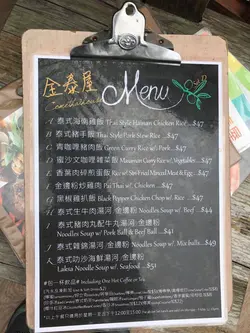 金泰屋
Menu
A 泰式海南雞飯 Thai Style Hainan Chicken Rice...$47
B 泰式豬手飯 Thai Style Pork Stew Rice ...$47
C 青咖哩豬肉飯 Green Curry Rice w/. Pork...$47
D 蜜沙文咖哩雜菜飯 Massaman Curry Rice w/. Vegetables...$47
E 香葉肉碎煎蛋飯 Rice w/. Stir Fried Minced Meat & Egg...$47
F 金邊粉炒雞肉 Pai Thai w/. Chicken...$47
G 黑椒雞扒飯 Black Pepper Chicken Chop w/. Rice...$47
H 泰式生牛肉湯河/金邊粉 Noodles Soup w/. Beef ...$47
泰式豬肉丸配牛丸湯河/金邊粉
Noodles Soup w/ Pork Ball & Beef Ball ...$41
J 泰式雜錦湯河/金邊粉 Noodles Soup w/. Mix balls...$49
K 泰式叻沙海鮮湯河/金邊粉
Laksa Noodle Soup w/. Seafood ...$51
#包一杯飲品# Including One Hot Coffee or Tea.